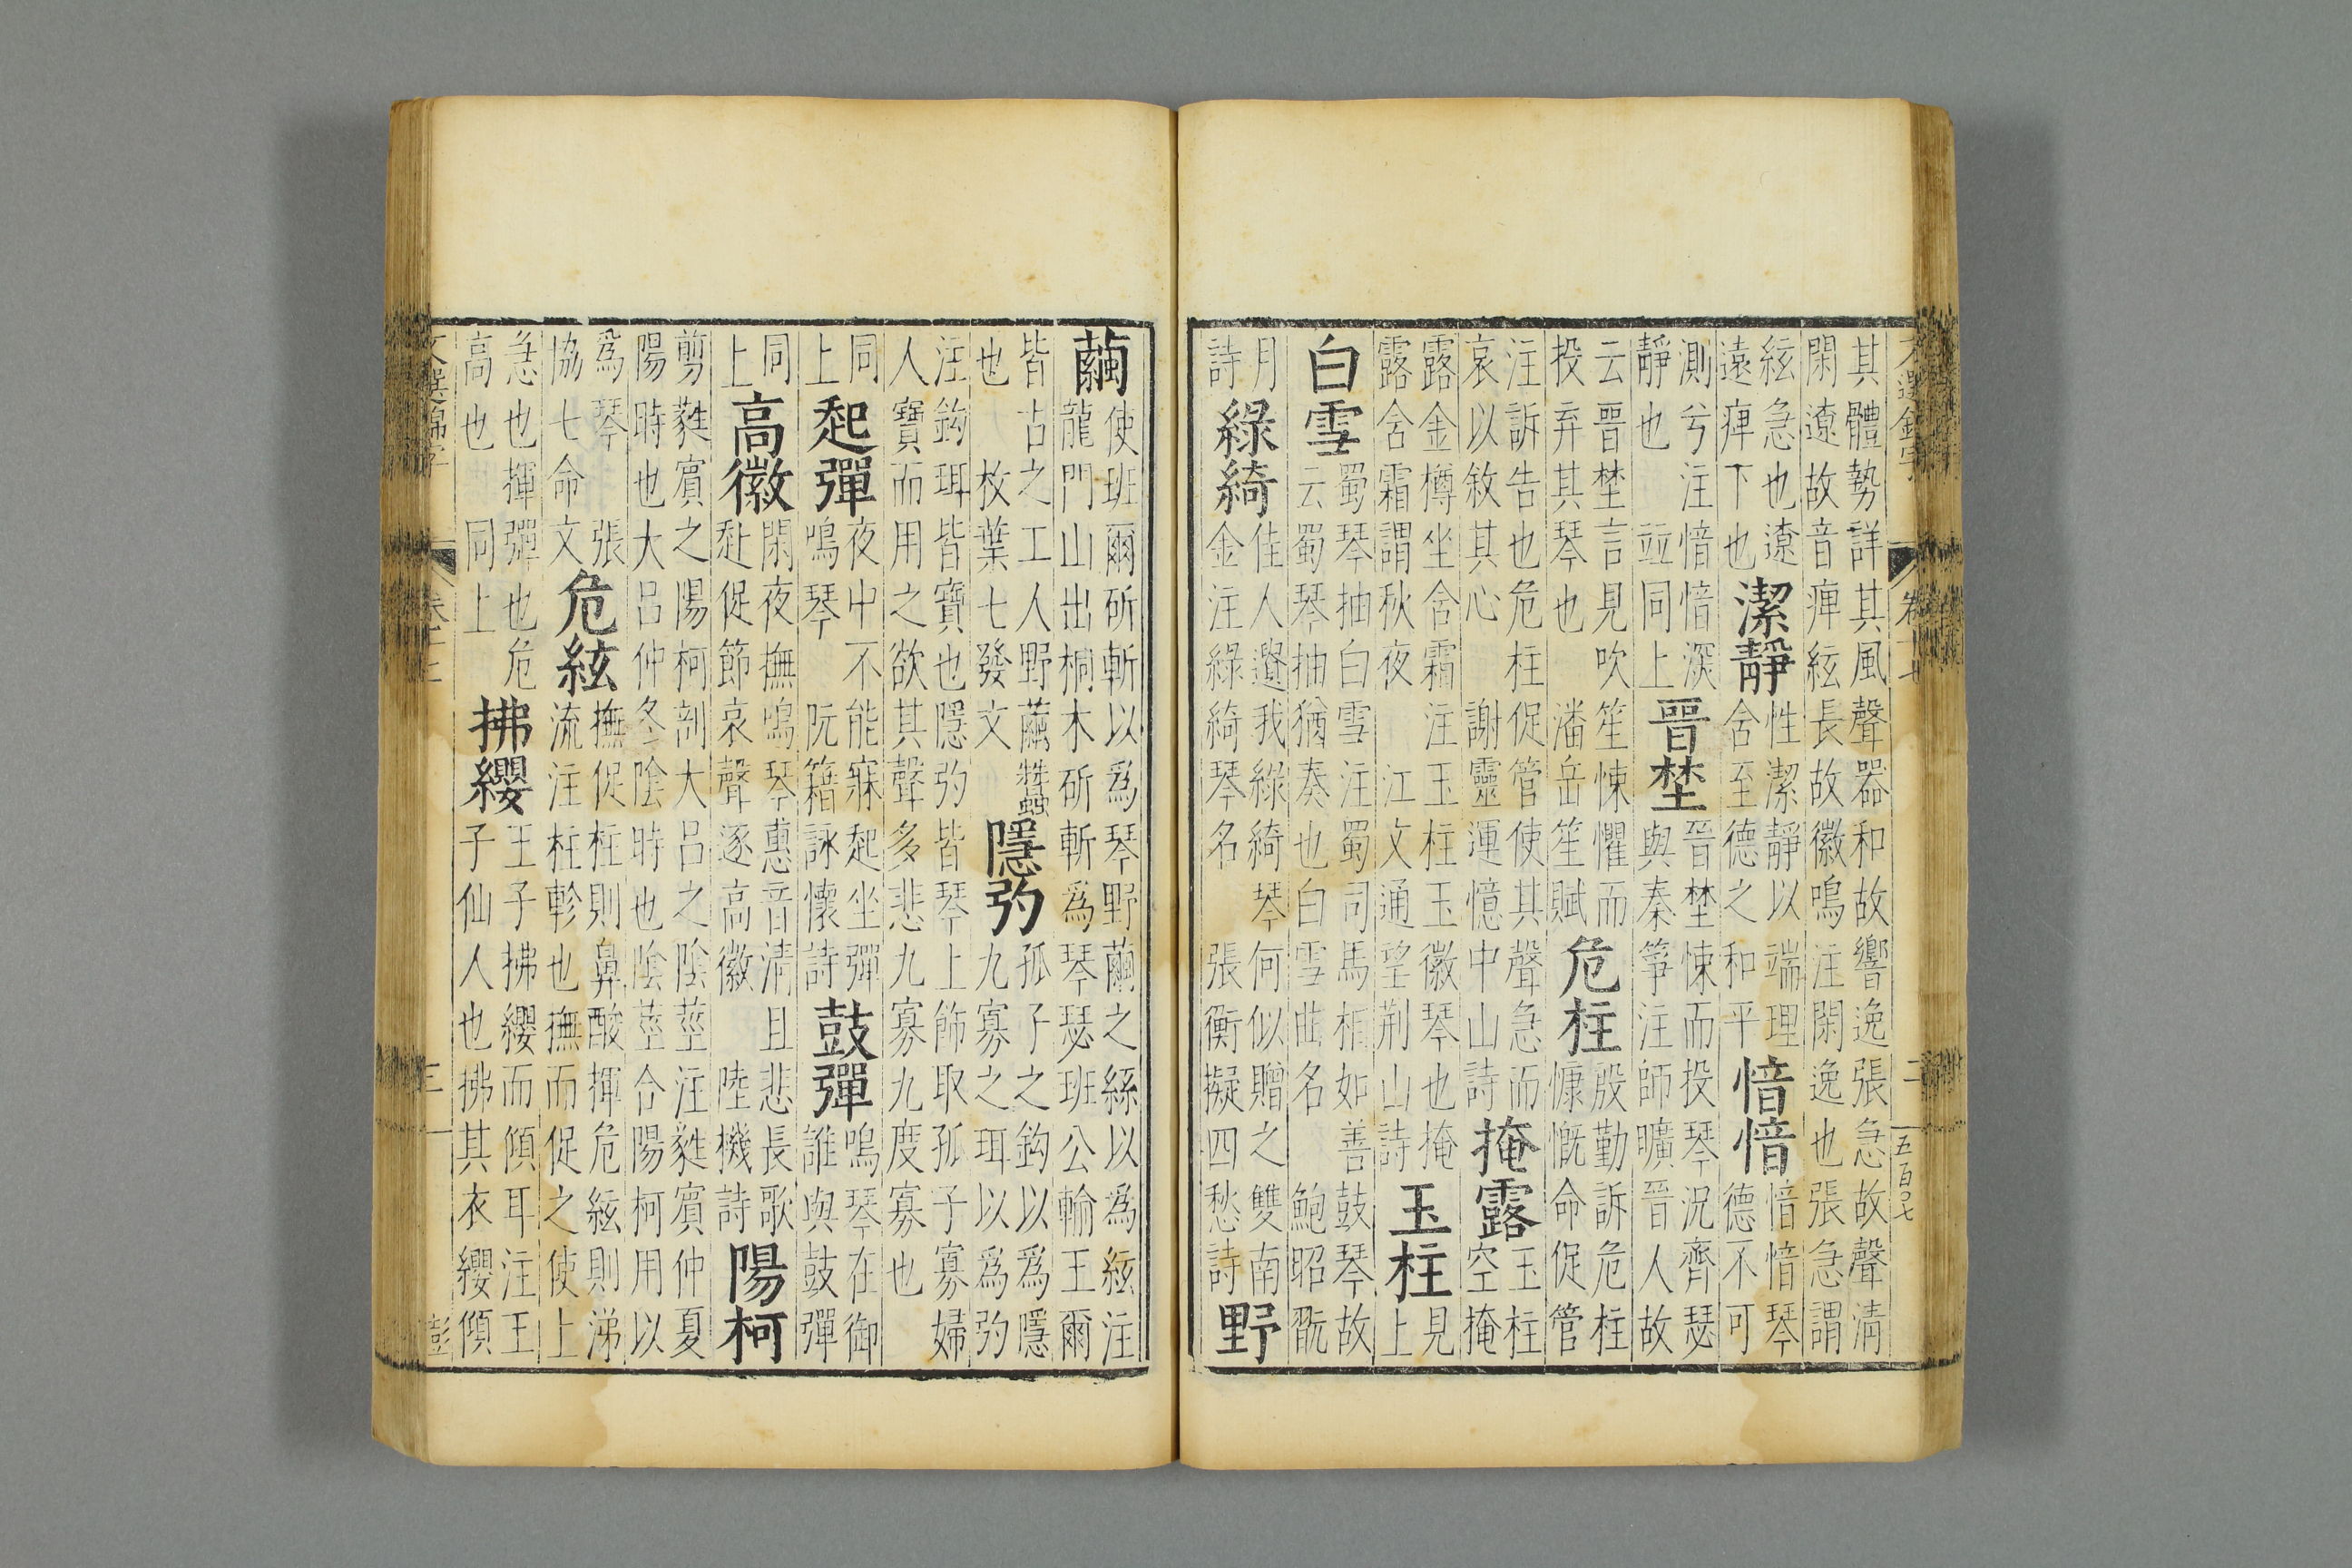 文選錦字 卷十七 二 五百〇七
其體勢詳其風聲器和故響逸張急故聲清
閑遼故音痺絃長故徽鳴注閑逸也張急謂
絃急也遼
遠痺下也
潔靜
性潔靜以端理
舍至德之和平
愔愔
愔愔琴
德不可
測兮注愔愔深
靜也 竝同上
晉埜
晉埜悚而投琴況齊瑟
與秦箏注師曠晉人故
云晉埜言見吹笙悚懼而
投弃其琴也 潘岳笙賦
危柱
殷勤訴危柱
慷慨命促管
注訴告也危柱促管使其聲急而
哀以敘其心 謝靈運憶中山詩
掩露
玉柱
空掩
露金樽坐舍霜 注玉柱玉徽琴也掩
露舍霜謂秋夜 江文通望荆山詩
玉柱
見
上
白雪
蜀琴抽白雪注蜀司馬相如善鼓琴故
云蜀琴抽猶奏也白雪曲名 鮑昭翫
月
詩
綠綺
佳人遺我綠綺琴何似贈之雙南
金注綠綺琴名 張衡擬四愁詩
野
繭
使班爾斫斬以爲琴野繭之絲以為絃注
龍門山出桐木斫斬爲琴瑟班公輸王爾
皆古之工人野繭蠶
也 枚葉七發文
隱約
孤子之鈎以爲隱
九寡之珥以爲約
注鈎珥皆寶也隱約皆琴上飾取孤子寡婦
人寶而用之欲其聲多悲九寡九度寡也
同
上
起彈
夜中不能寐起坐彈
鳴琴 阮籍詠懷詩
鼓彈
鳴琴在御
誰與鼓彈
同
上
高徽
閑夜撫鳴琴蕙音清且悲長歌
赴促節哀聲逐高徽 陸機詩
陽柯
剪蕤賓之陽柯剖大呂之陰莖注蕤賓仲夏
陽時也大呂仲冬陰時也陰莖合陽柯用以
爲琴 張
協七命文
危絃
撫促柱則鼻酸揮危絃則涕
流注柱軫也撫而促之使上
急也揮彈也危
高也 同上
拂纓
王子拂纓而傾耳注王
子仙人也拂其衣纓傾
文選錦字 卷十七 三 彭